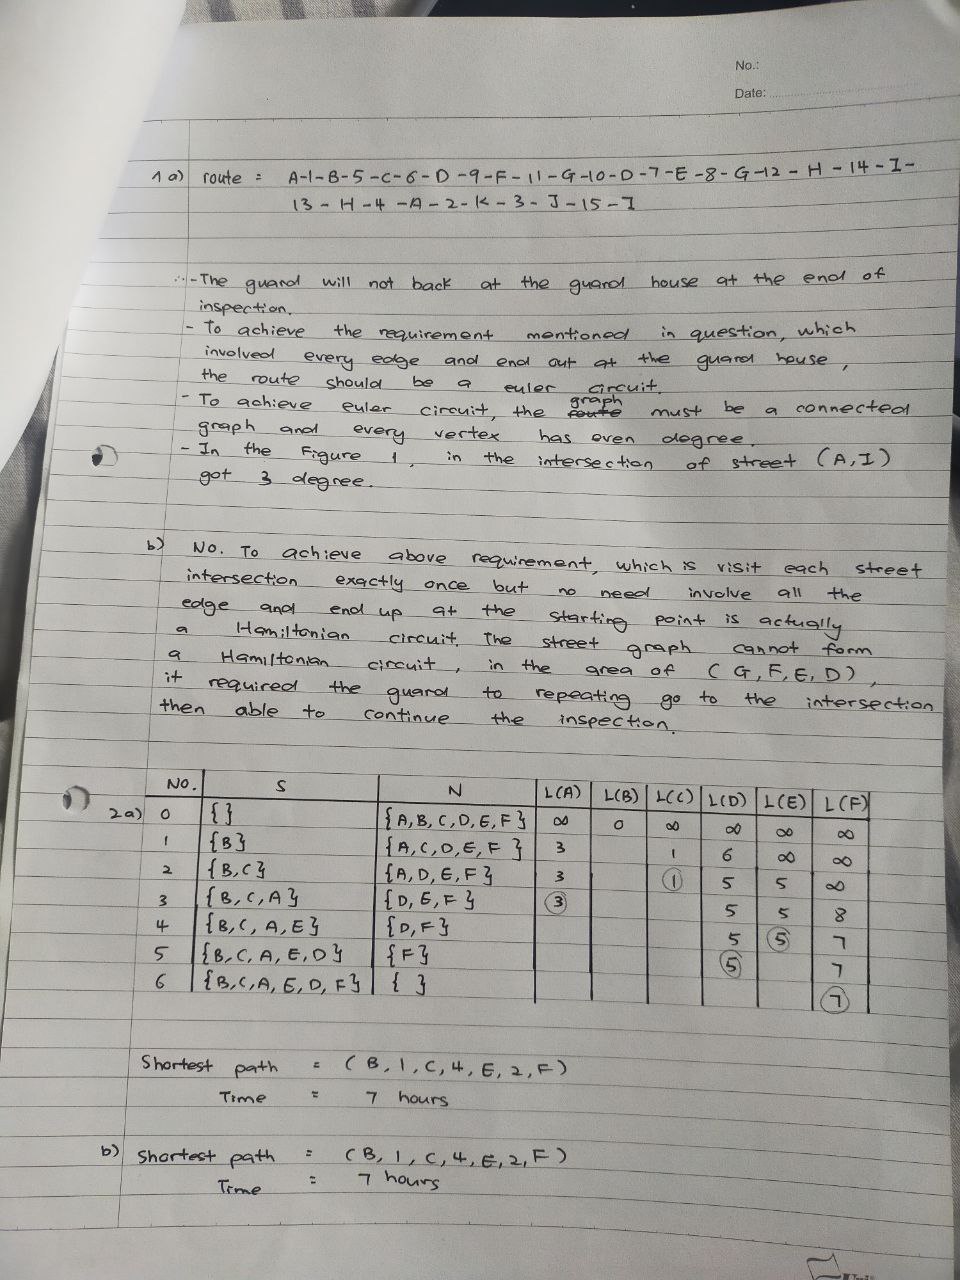 No.:
Date:
1 a) route : A-1-B-5-C-6-D-9-F-11-G-10-D-7-E-8-G-12-H-14-I-
13-H-4-A-2-K-3-J-15-I
∴ - The guard will not back at the guard house at the end of
inspection.
- To achieve the requirement mentioned in question, which
involved every edge and end out at the guard house,
the route should be a euler circuit.
- To achieve euler circuit, the graph must be a connected
graph and every vertex has even degree.
- In the Figure 1, in the intersection of street (A,I)
got 3 degree.
b) No. To achieve above requirement, which is visit each street
intersection exactly once but no need involve all the
edge and end up at the starting point is actually
a Hamiltonian circuit. The street graph cannot form
a Hamiltonian circuit, in the area of (G,F,E,D),
it required the guard to repeating go to the intersection
then able to continue the inspection.
No. S N L(A) L(B) L(C) L(D) L(E) L(F)
2a) 0 {} {A,B,C,D,E,F} ∞ 0 ∞ ∞ ∞ ∞
1 {B} {A,C,D,E,F} 3 1 6 ∞ ∞
2 {B,C} {A,D,E,F} 3 1 5 5 ∞
3 {B,C,A} {D,E,F} 3 5 5 8
4 {B,C,A,E} {D,F} 5 5 7
5 {B,C,A,E,D} {F} 5 7
6 {B,C,A,E,D,F} { } 7
Shortest path = (B,1,C,4,E,2,F)
Time = 7 hours
b) Shortest path = (B,1,C,4,E,2,F)
Time = 7 hours